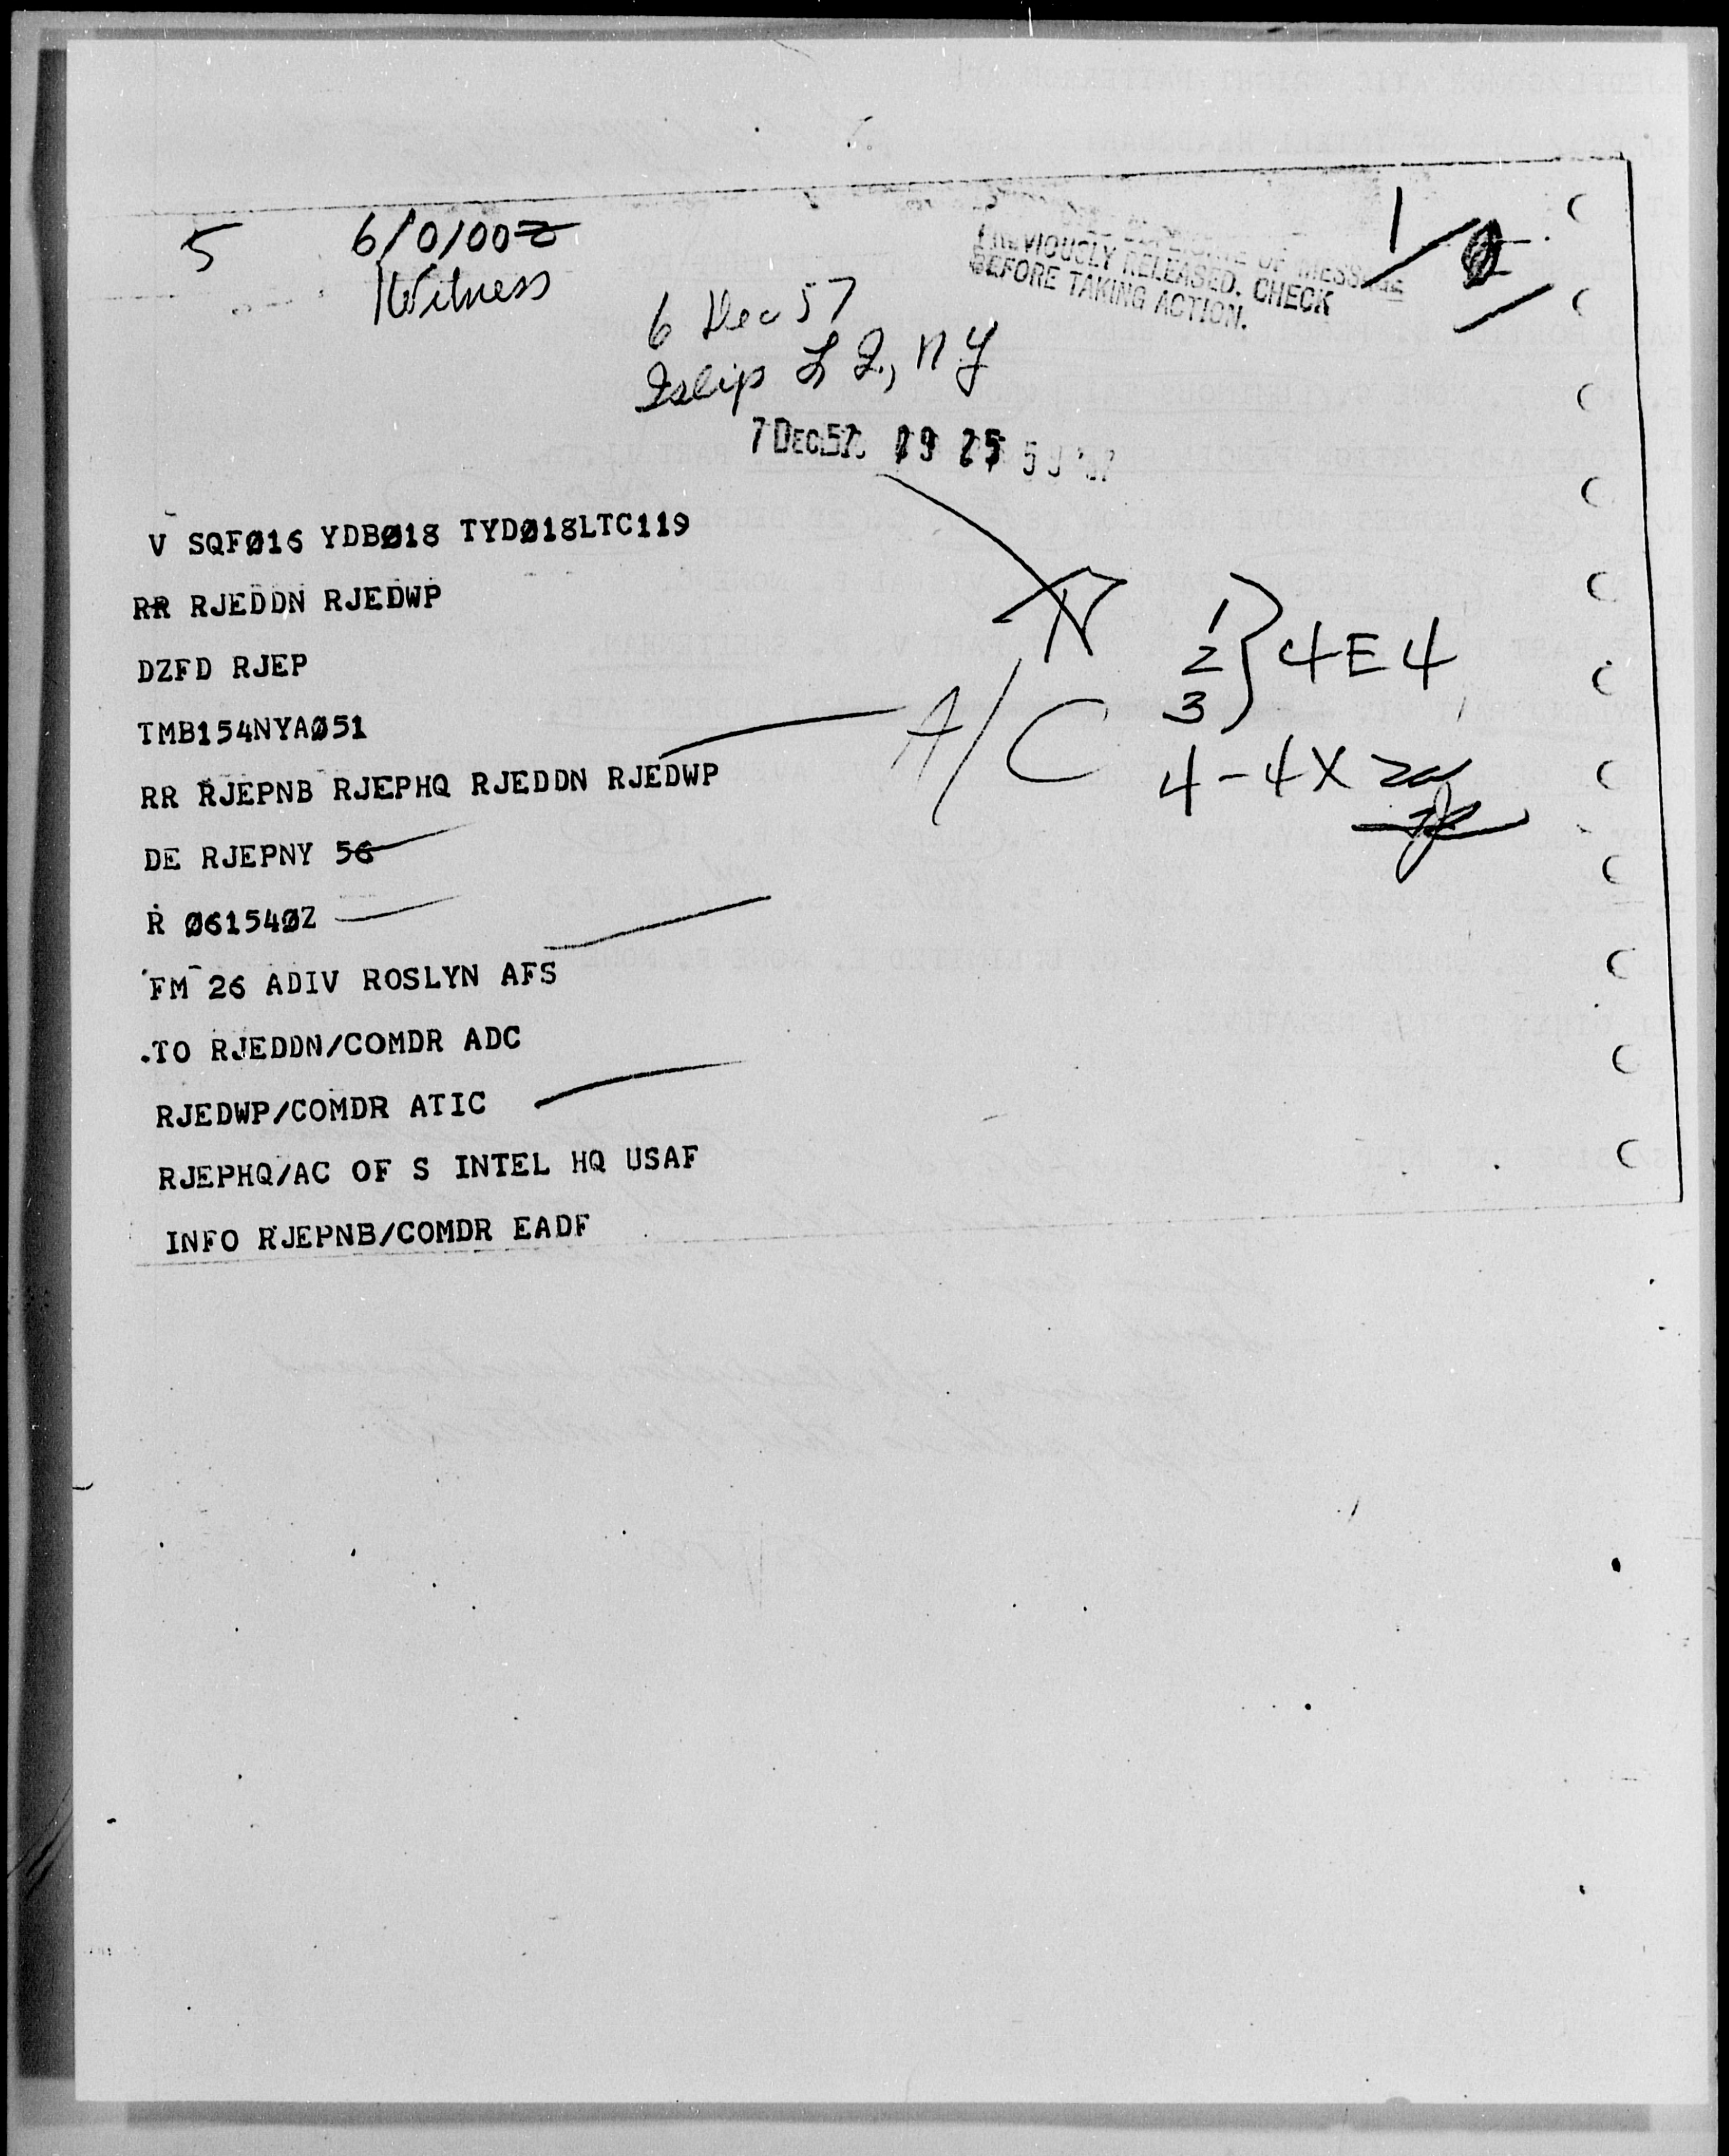 5 6/0100Z
Witness
PREVIOUSLY RELEASED. CHECK
BEFORE TAKING ACTION.
1/2
6 Dec 57
Islip L I., NY
7 DEC 57 19 25
V SQFØ16 YDBØ18 TYDØ18LTC119
RR RJEDDN RJEDWP
DZFD RJEP
TMB154NYAØ51
RR RJEPNB RJEPHQ RJEDDN RJEDWP
DE RJEPNY 56
R Ø6154ØZ
FM 26 ADIV ROSLYN AFS
TO RJEDDN/COMDR ADC
RJEDWP/COMDR ATIC
RJEPHQ/AC OF S INTEL HQ USAF
INFO RJEPNB/COMDR EADF
A/C
1
2 } 4E4
3
4-4X